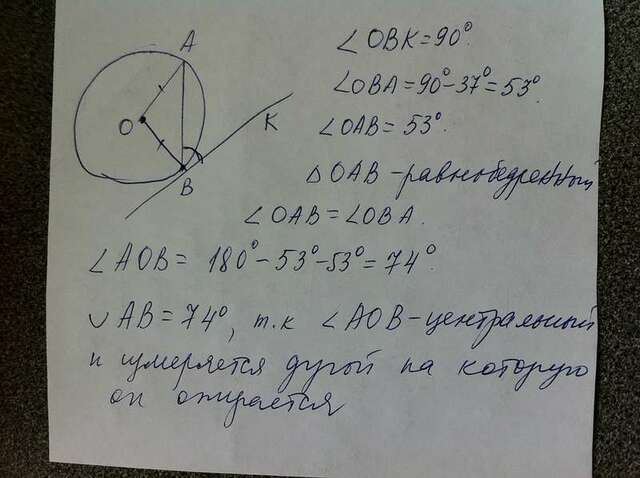 A
O
B
K
∠OBK = 90°
∠OBA = 90° - 37° = 53°.
∠OAB = 53°.
△OAB - равнобедренный
∠OAB = ∠OBA.
∠AOB = 180° - 53° - 53° = 74°.
◡AB = 74°, т.к ∠AOB - центральный
и измеряется дугой на которую
он опирается